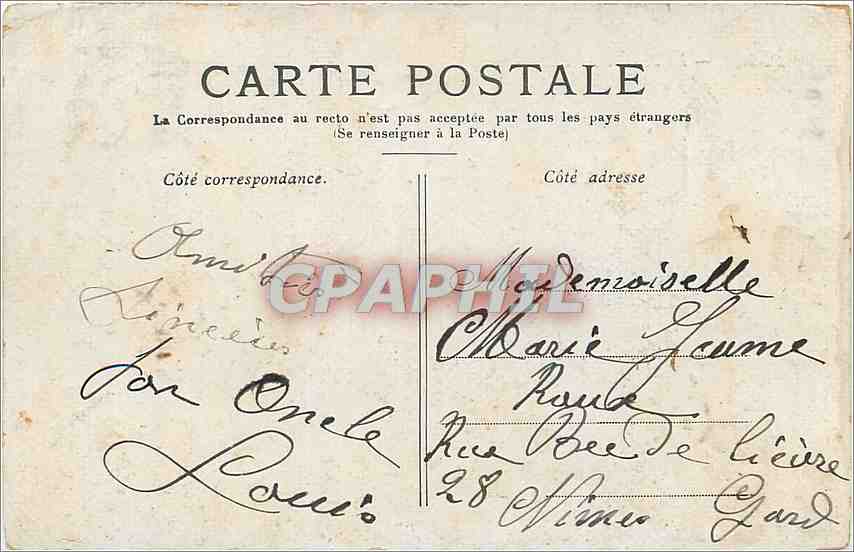 CARTE POSTALE
La Correspondance au recto n'est pas acceptée par tous les pays étrangers
(Se renseigner à la Poste)
Côté correspondance.
Côté adresse
Amitiés
sincères
ton Oncle
Louis
CPAPHIL
Mademoiselle
Marie Jeanne
Roux
Rue Bec de lièvre
28
Nimes Gard